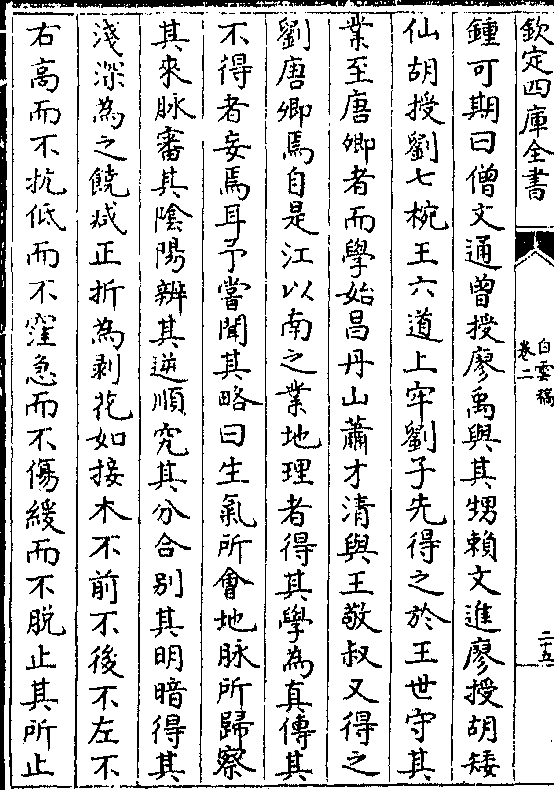 欽定四庫全書
白雲稿
卷二
二十五
鍾可期曰僧文通曾授廖禹與其甥賴文進廖授胡矮
仙胡授劉七椀王六道上牢劉子先得之於王世守其
業至唐卿者而學始昌丹山蕭才清與王敬叔又得之
劉唐卿焉自是江以南之業地理者得其學為真傳其
不得者妄焉耳予嘗聞其略曰生氣所會地脉所歸察
其來脉審其陰陽辨其逆順究其分合別其明暗得其
淺深為之饒减正折為剥花如接木不前不後不左不
右高而不抗低而不窪急而不傷緩而不脫止其所止